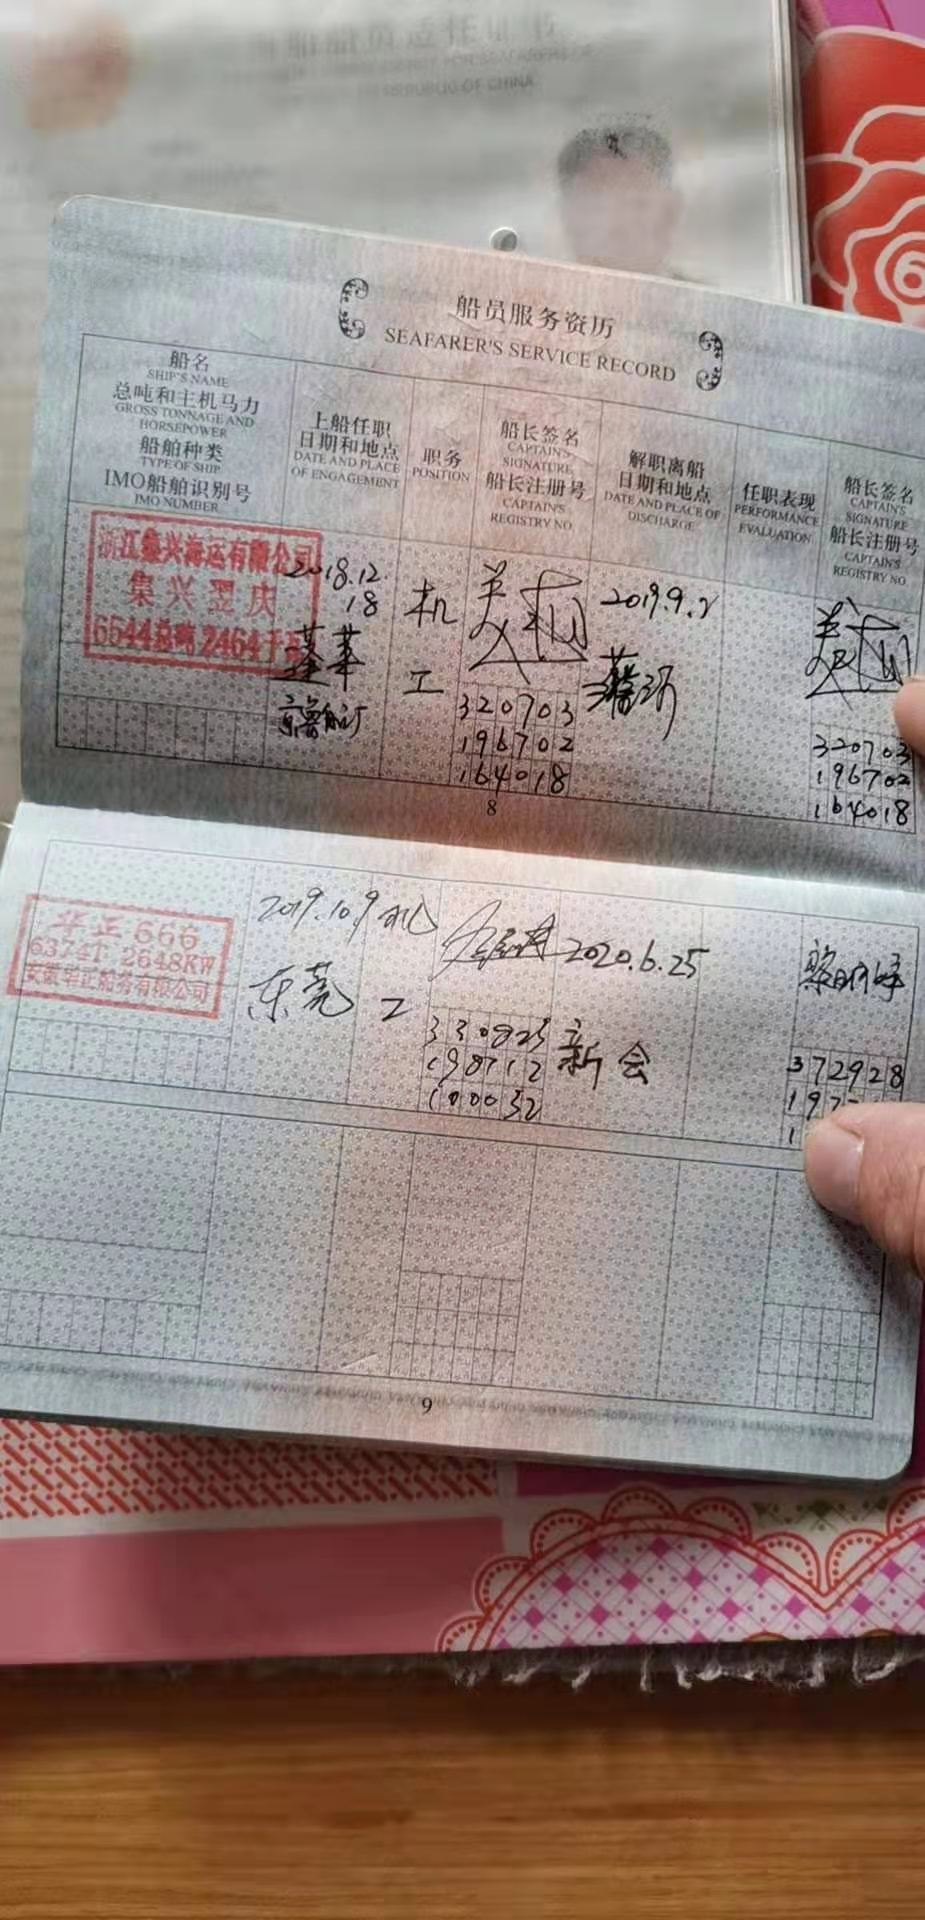 船员适任证书
OF CHINA
船员服务资历
SEAFARER'S SERVICE RECORD
船名
SHIP'S NAME
总吨和主机马力
GROSS TONNAGE AND
HORSEPOWER
船舶种类
TYPE OF SHIP
IMO船舶识别号
IMO NUMBER
上船任职
日期和地点
DATE AND PLACE
OF ENGAGEMENT
职务
POSITION
船长签名
CAPTAIN'S
SIGNATURE
船长注册号
CAPTAIN'S
REGISTRY NO
解职离船
日期和地点
DATE AND PLACE OF
DISCHARGE
任职表现
PERFORMANCE
EVALUATION
船长签名
CAPTAIN'S
SIGNATURE
船长注册号
CAPTAIN'S
REGISTRY NO
浙江集兴海运有限公司
集兴翌庆
6644总吨 2464千瓦
2018.12.
18
蓬莱
机
工
320703
196702
164018
2019.9.2
320703
196702
164018
8
华正666
6374T 2648KW
安徽华正船务有限公司
2019.10.9
东莞
机
工
330825
198712
100052
2020.6.25
新会
372928
197
1
9